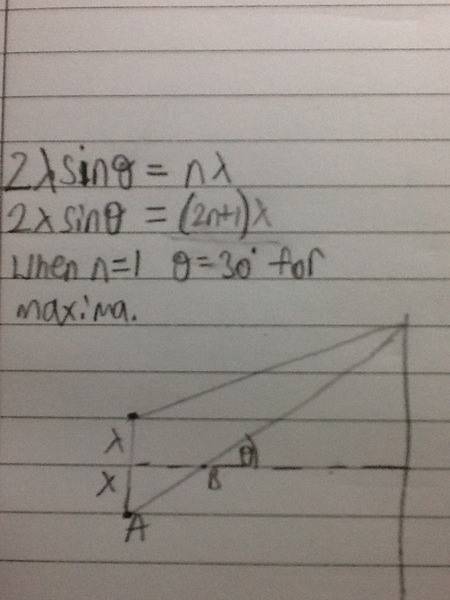 2λsinθ = nλ
2λsinθ = (2n+1)λ
When n=1 θ=30° for
maxima.
λ
θ
λ
B
A